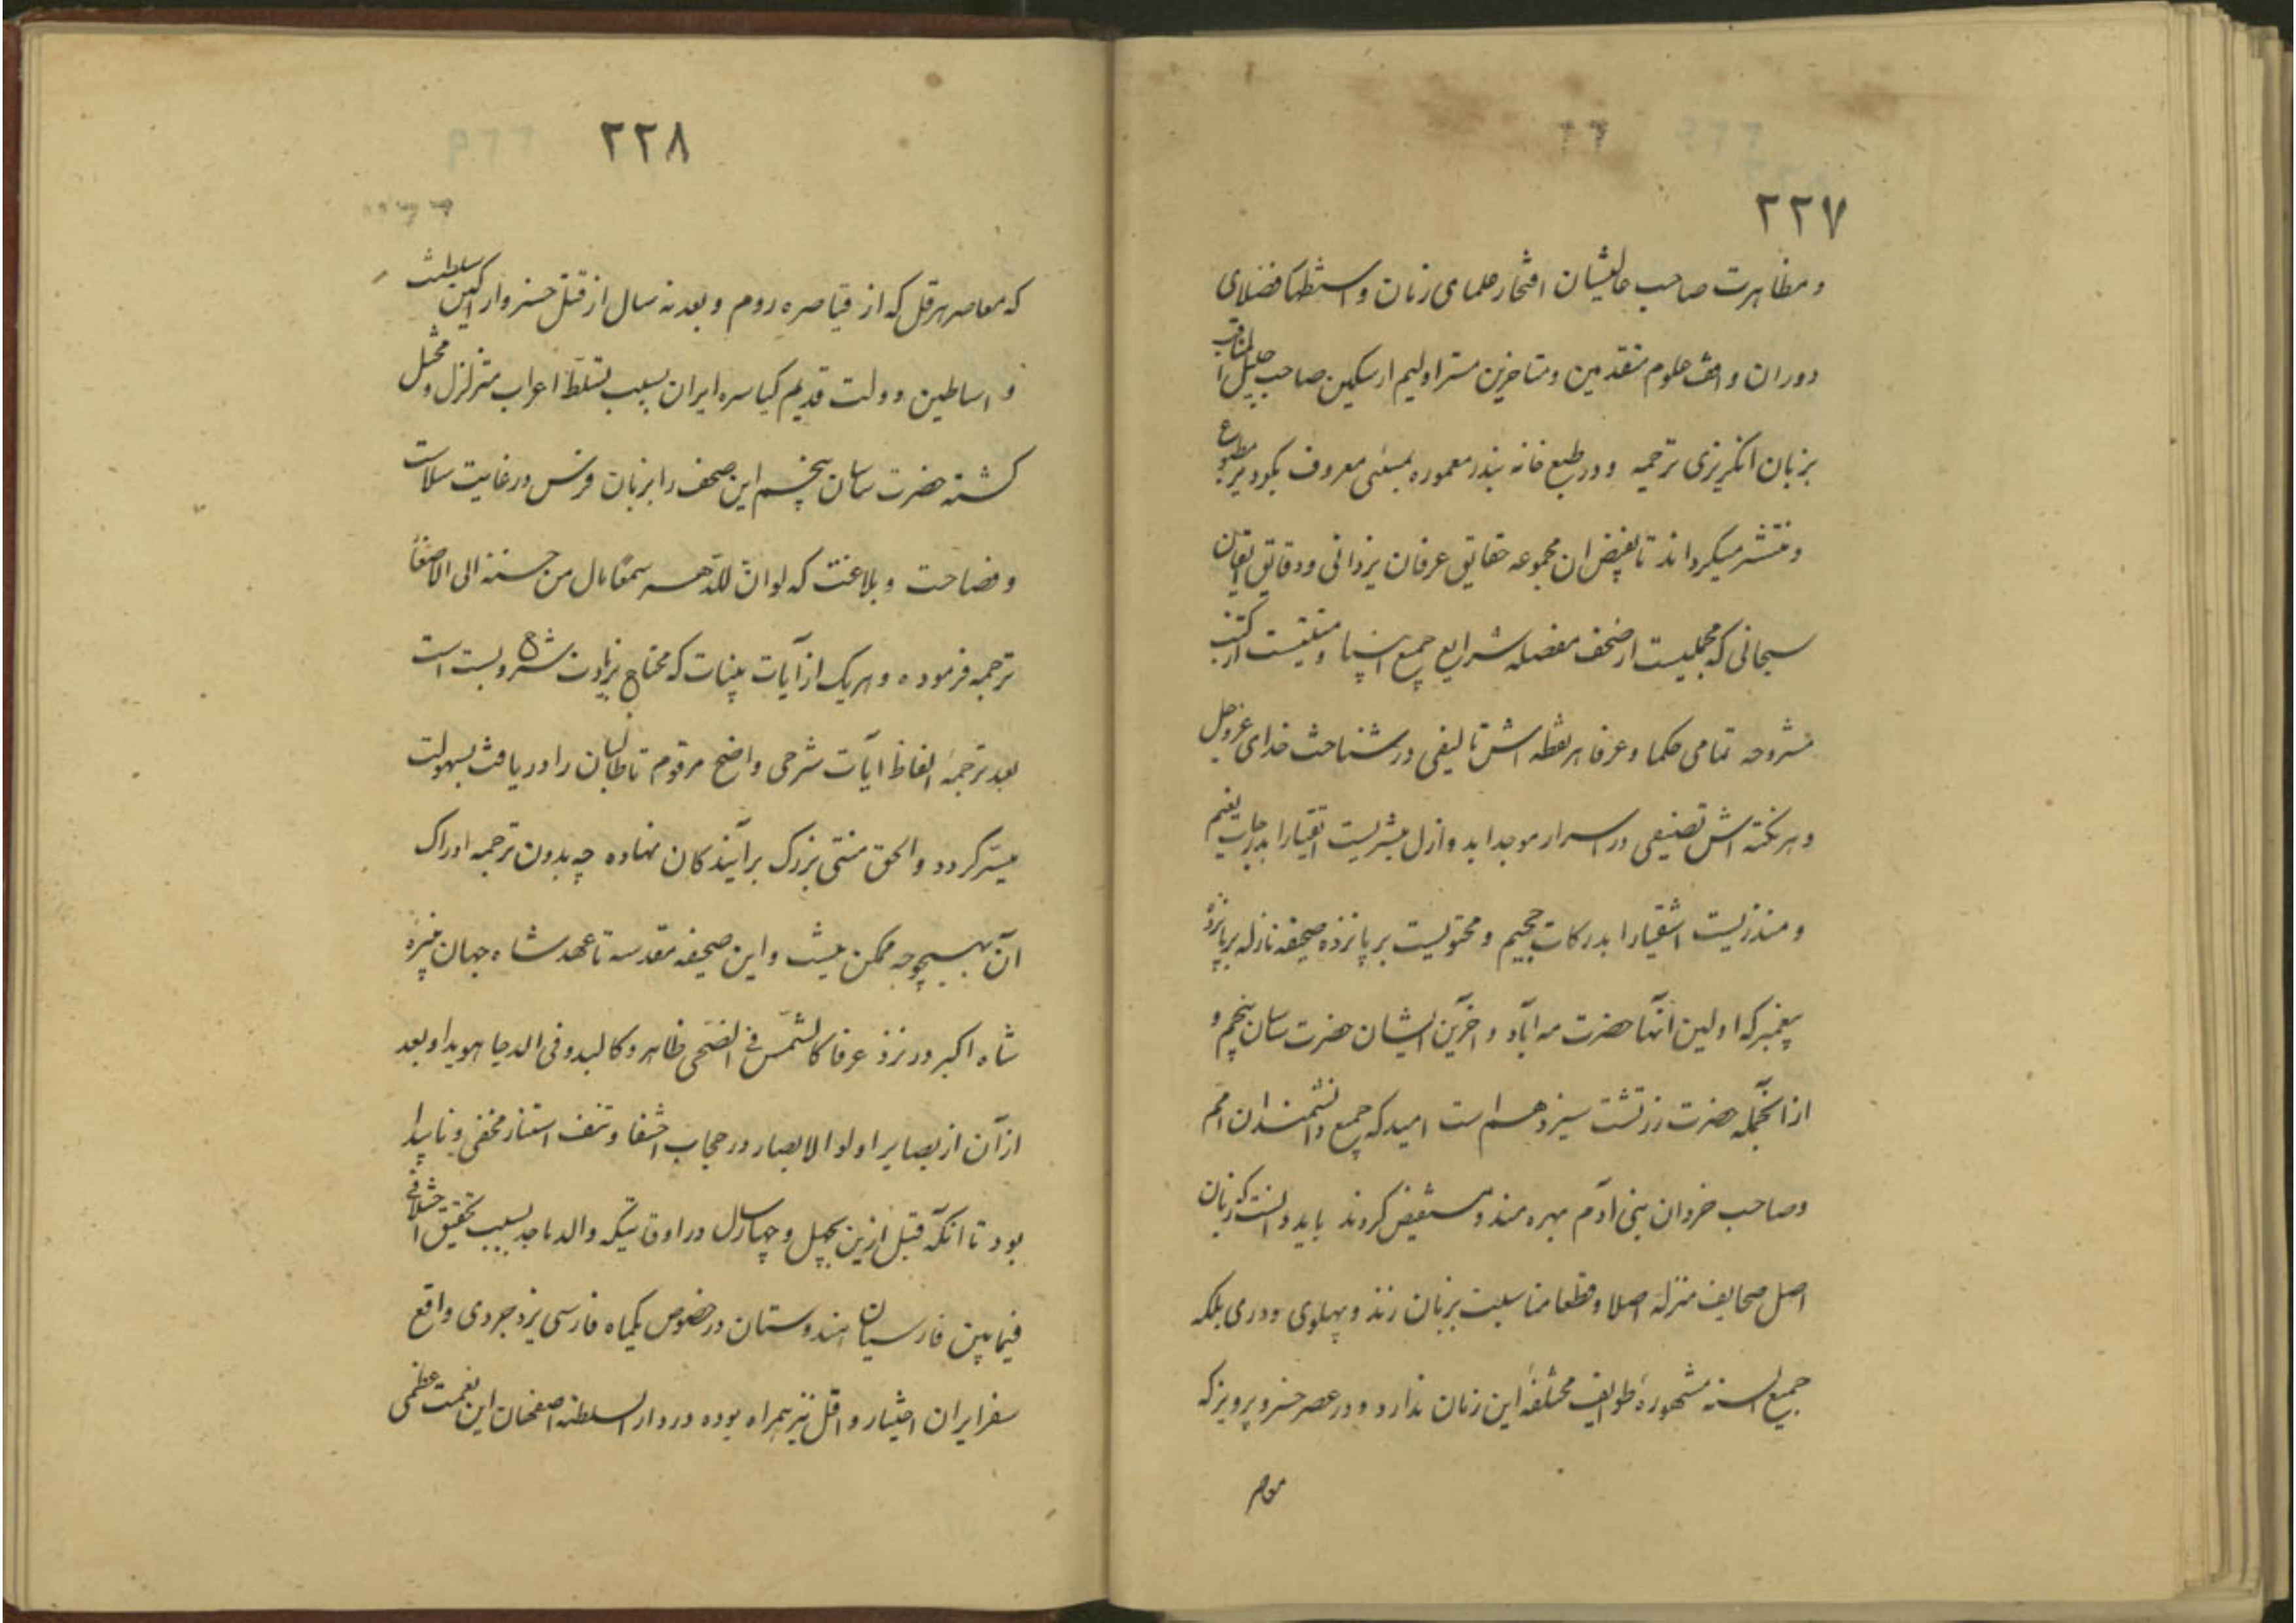 ٢٢٧
و مظاهرت صاحب عالیشان افتخار علمای زمان و استظهار فضلای
دوران واقف علوم متقدمین و متاخرین مستر اولیم ارسکین صاحب جلیل المناقب
بزبان انگریزی ترجمه و در طبع خانه بندر معموره بمبئی معروف بکودیر مطبوع
و منتشر میکرداند تا بفیض ان مجموعه حقایق عرفان یزدانی و دقایق ایقان
سبحانی که مجملیست از صحف مفصله شرایع جمیع انبیا و منتخبیست از کتب
مشروحه تمامی حکما و عرفا هر نقطه اش تالیفی در شناخت خدای عزوجل
و هر نکته اش تصنیفی در اسرار موجد ابد و ازل مبشریست اتقیا را بدرجات نعیم
و منذریست اشقیا را بدرکات جحیم و محتویست بر پانزده صحیفه نازله بر پانزده
پیغمبر که اولین آنها حضرت مه آباد و اخرین ایشان حضرت ساسان پنجم و
از انجمله حضرت زرتشت سیزدهم است امید که جمیع دانشمندان امم
و صاحب خردان بنی آدم بهره مند و مستفیض کردند باید دانست که زبان
اصل صحایف منزله اصلا و قطعا مناسبت بزبان زند و پهلوی و دری بلکه
جمیع السنه مشهورهٔ طوایف مختلفه این زمان ندارد و در عصر خسرو پرویز که
معاصر
٢٢٨
که معاصر هرقل که از قیاصره روم و بعد نه سال از قتل خسرو اراکین سلطنت
و اساطین دولت قدیم کیاسره ایران بسبب تسلط اعراب متزلزل و مختل
کشته حضرت ساسان پنجم این صحف را بزبان فرس در غایت سلاست
و فصاحت و بلاغت که لوان للدهر سمعا مال من حسنه الی الاصغا
ترجمه فرموده و هر یک از آیات بینات که محتاج بزیادت شرح و بسط است
بعد ترجمهٔ الفاظ ایات شرحی واضح مرقوم تا طالبان را دریافت بسهولت
میسر کردد و الحق منتی بزرک بر آیندکان نهاده چه بدون ترجمه ادراک
آن بهیچوجه ممکن نیست و این صحیفه مقدسه تا عهد شاه جهان نبیرهٔ
شاه اکبر در نزد عرفا کالشمس فی الضحی ظاهر و کالبدر فی الدجا هویدا و بعد
از آن از بصایر اولوا الابصار در حجاب اختفا و تتق استتار مخفی و ناپیدا
بود تا انکه قبل ازین بچهل و چهار سال در اوقاتیکه والد ماجد بسبب تحقیق اختلاف
فیمابین فارسیان هندوستان در خصوص یکماه فارسی یزدجردی واقع
سفر ایران اختیار و اقل نیز همراه بوده در دار السلطنه اصفهان این نعمت عظمی